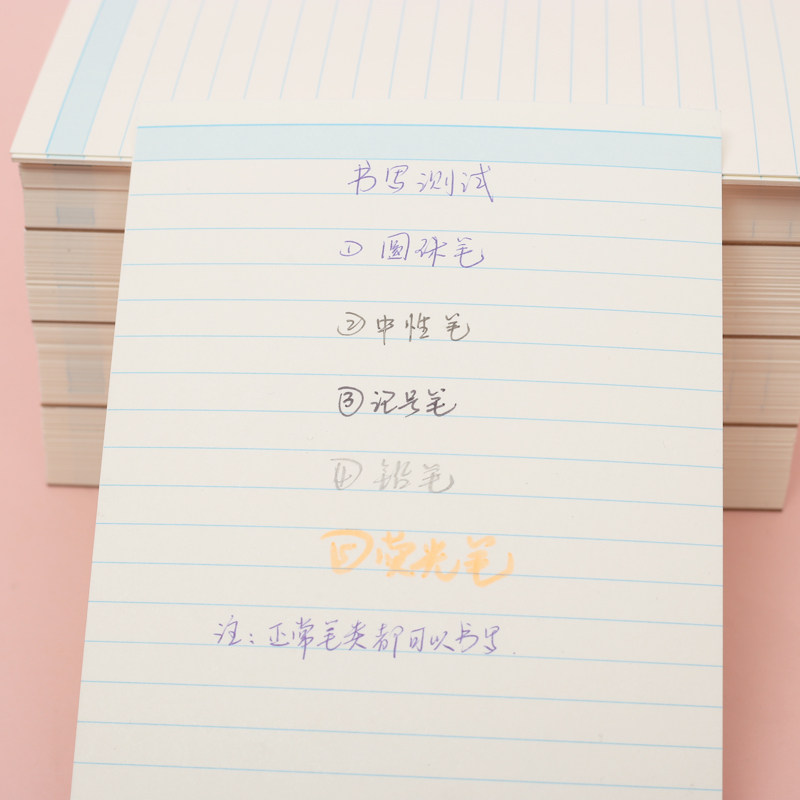 书写测试
① 圆珠笔
② 中性笔
③ 记号笔
④ 铅笔
⑤ 荧光笔
注：正常笔类都可以书写.